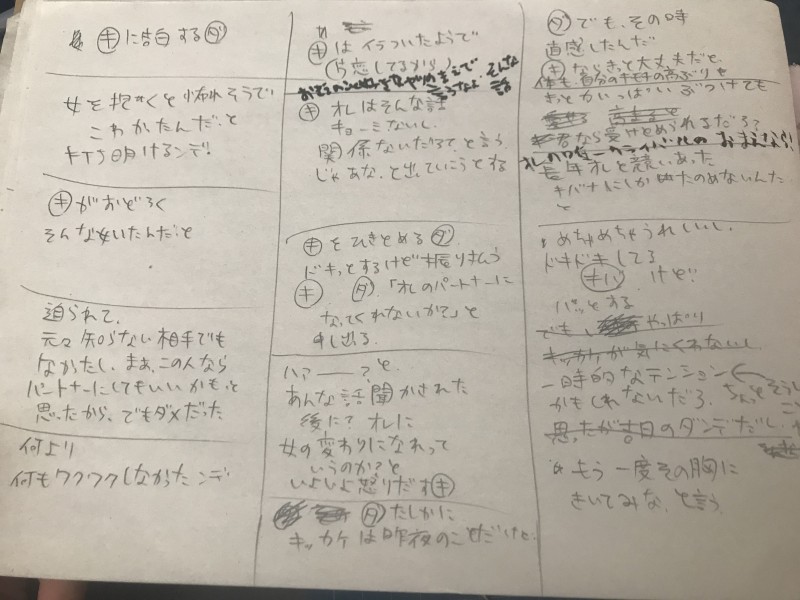 ㋖に告白する㋟
女を抱くと怖われそうで
こわかたんだ。と
打ち明けるンデ!
㋖がおどろく
そんな女いたんだ。と
迫られて、
元々知らない相手でも
なかたし、まあ、この人なら
パートナーにしてもいいかもっと
思ったから、でもダメだった
何より
何もワクワクしなかたンデ
㋖はイラついたようで
(片恋してるから)
そんな話
㋖ オレはそんな話
キョーミないし、
関係ないだろて、と言う、
じゃあな、と出ていこうとする
㋖をひきとめる㋟
ドキッとするけど振り払う
㋖ ㋟、「オレのパートナーに
なってくれないか?」と
申し出る。
ハァー?と
あんな話聞かされた
後に?オレに
女の変わりになれって
いうのか?と
いよいよ怒りだす㋖
㋟たしかに
キッカケは昨夜のことだけど、
㋟でも、その時
直感したんだ
㋖ならきっと大丈夫だと、
体も自分のキモチの高ぶりを
きっとカいっぱいぶつけても
君なら受けとめられるだろ?
オレの唯一のライバルのおまえなら!
長年オレと競いあった
キバナにしかたのめないんだ
と
めちゃめちゃうれしいし、
ドキドキしてる
㋖バ けど!
パッとする
でも、やっぱり
キッカケが気にくわないし、
一時的なテンション
かもしれないだろ、ちょっとそうし
思ったが吉日のダンデだし、
もう一度その胸に
きいてみな、と言う、